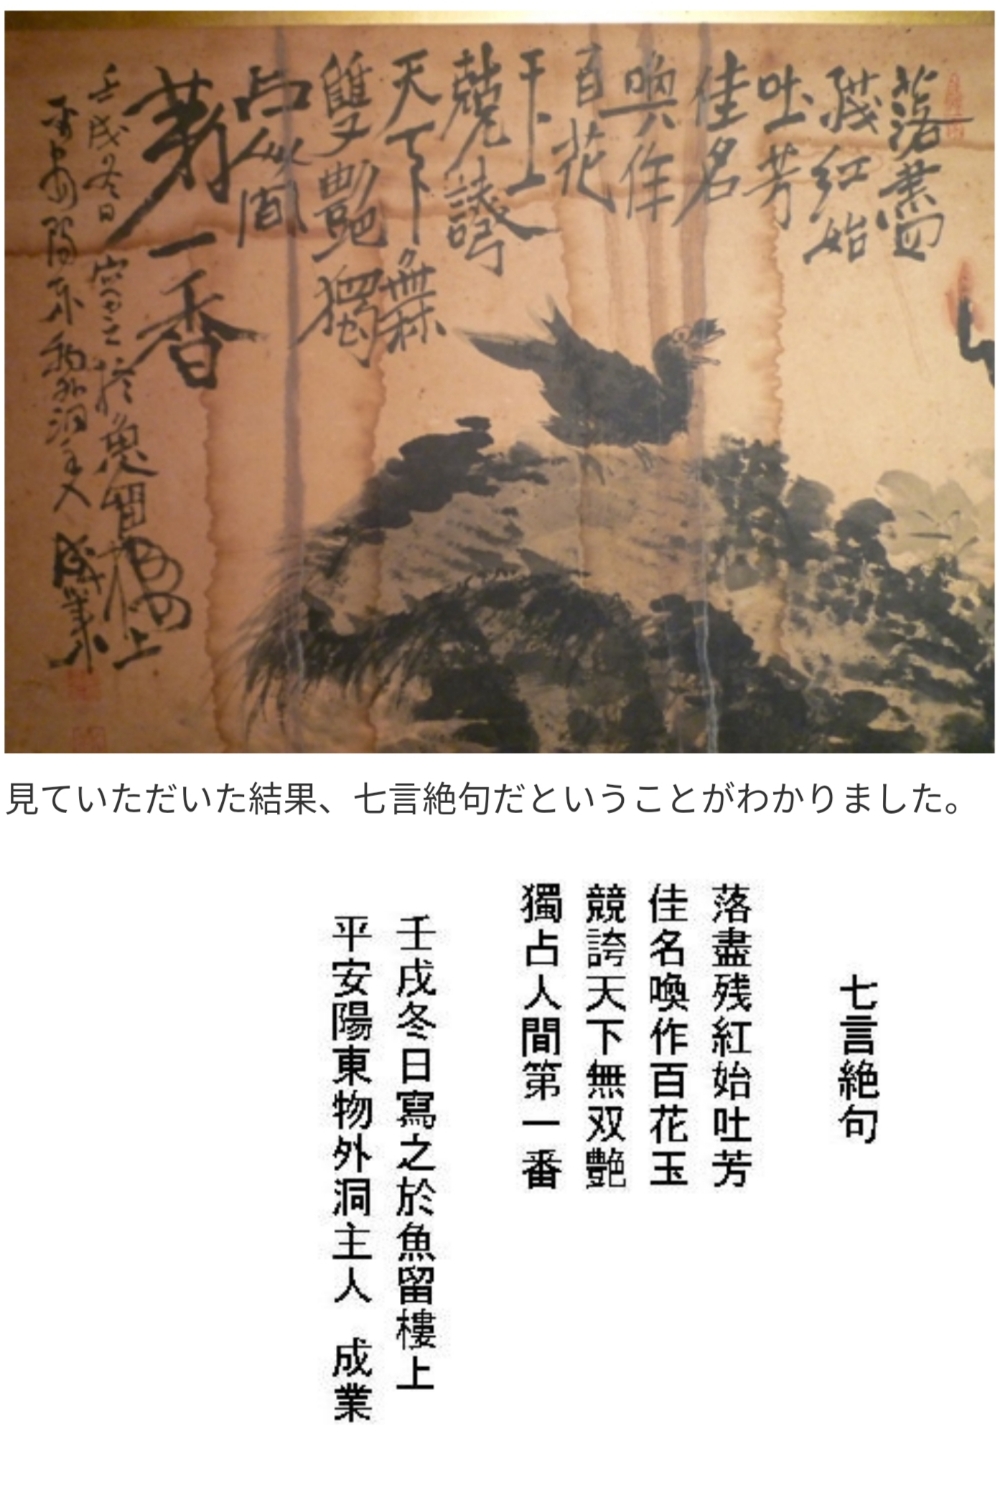 落盡
殘紅始
吐芳
佳名
喚作
百花
王
競誇
天下無
雙艷獨
占人間
第一香
壬戌冬日寫之於魚留樓上
平安陽東物外洞主人 成業
見ていただいた結果、七言絶句だということがわかりました。
七言絶句
落盡残紅始吐芳
佳名喚作百花玉
競誇天下無双艶
獨占人間第一番
壬戌冬日寫之於魚留樓上
平安陽東物外洞主人 成業